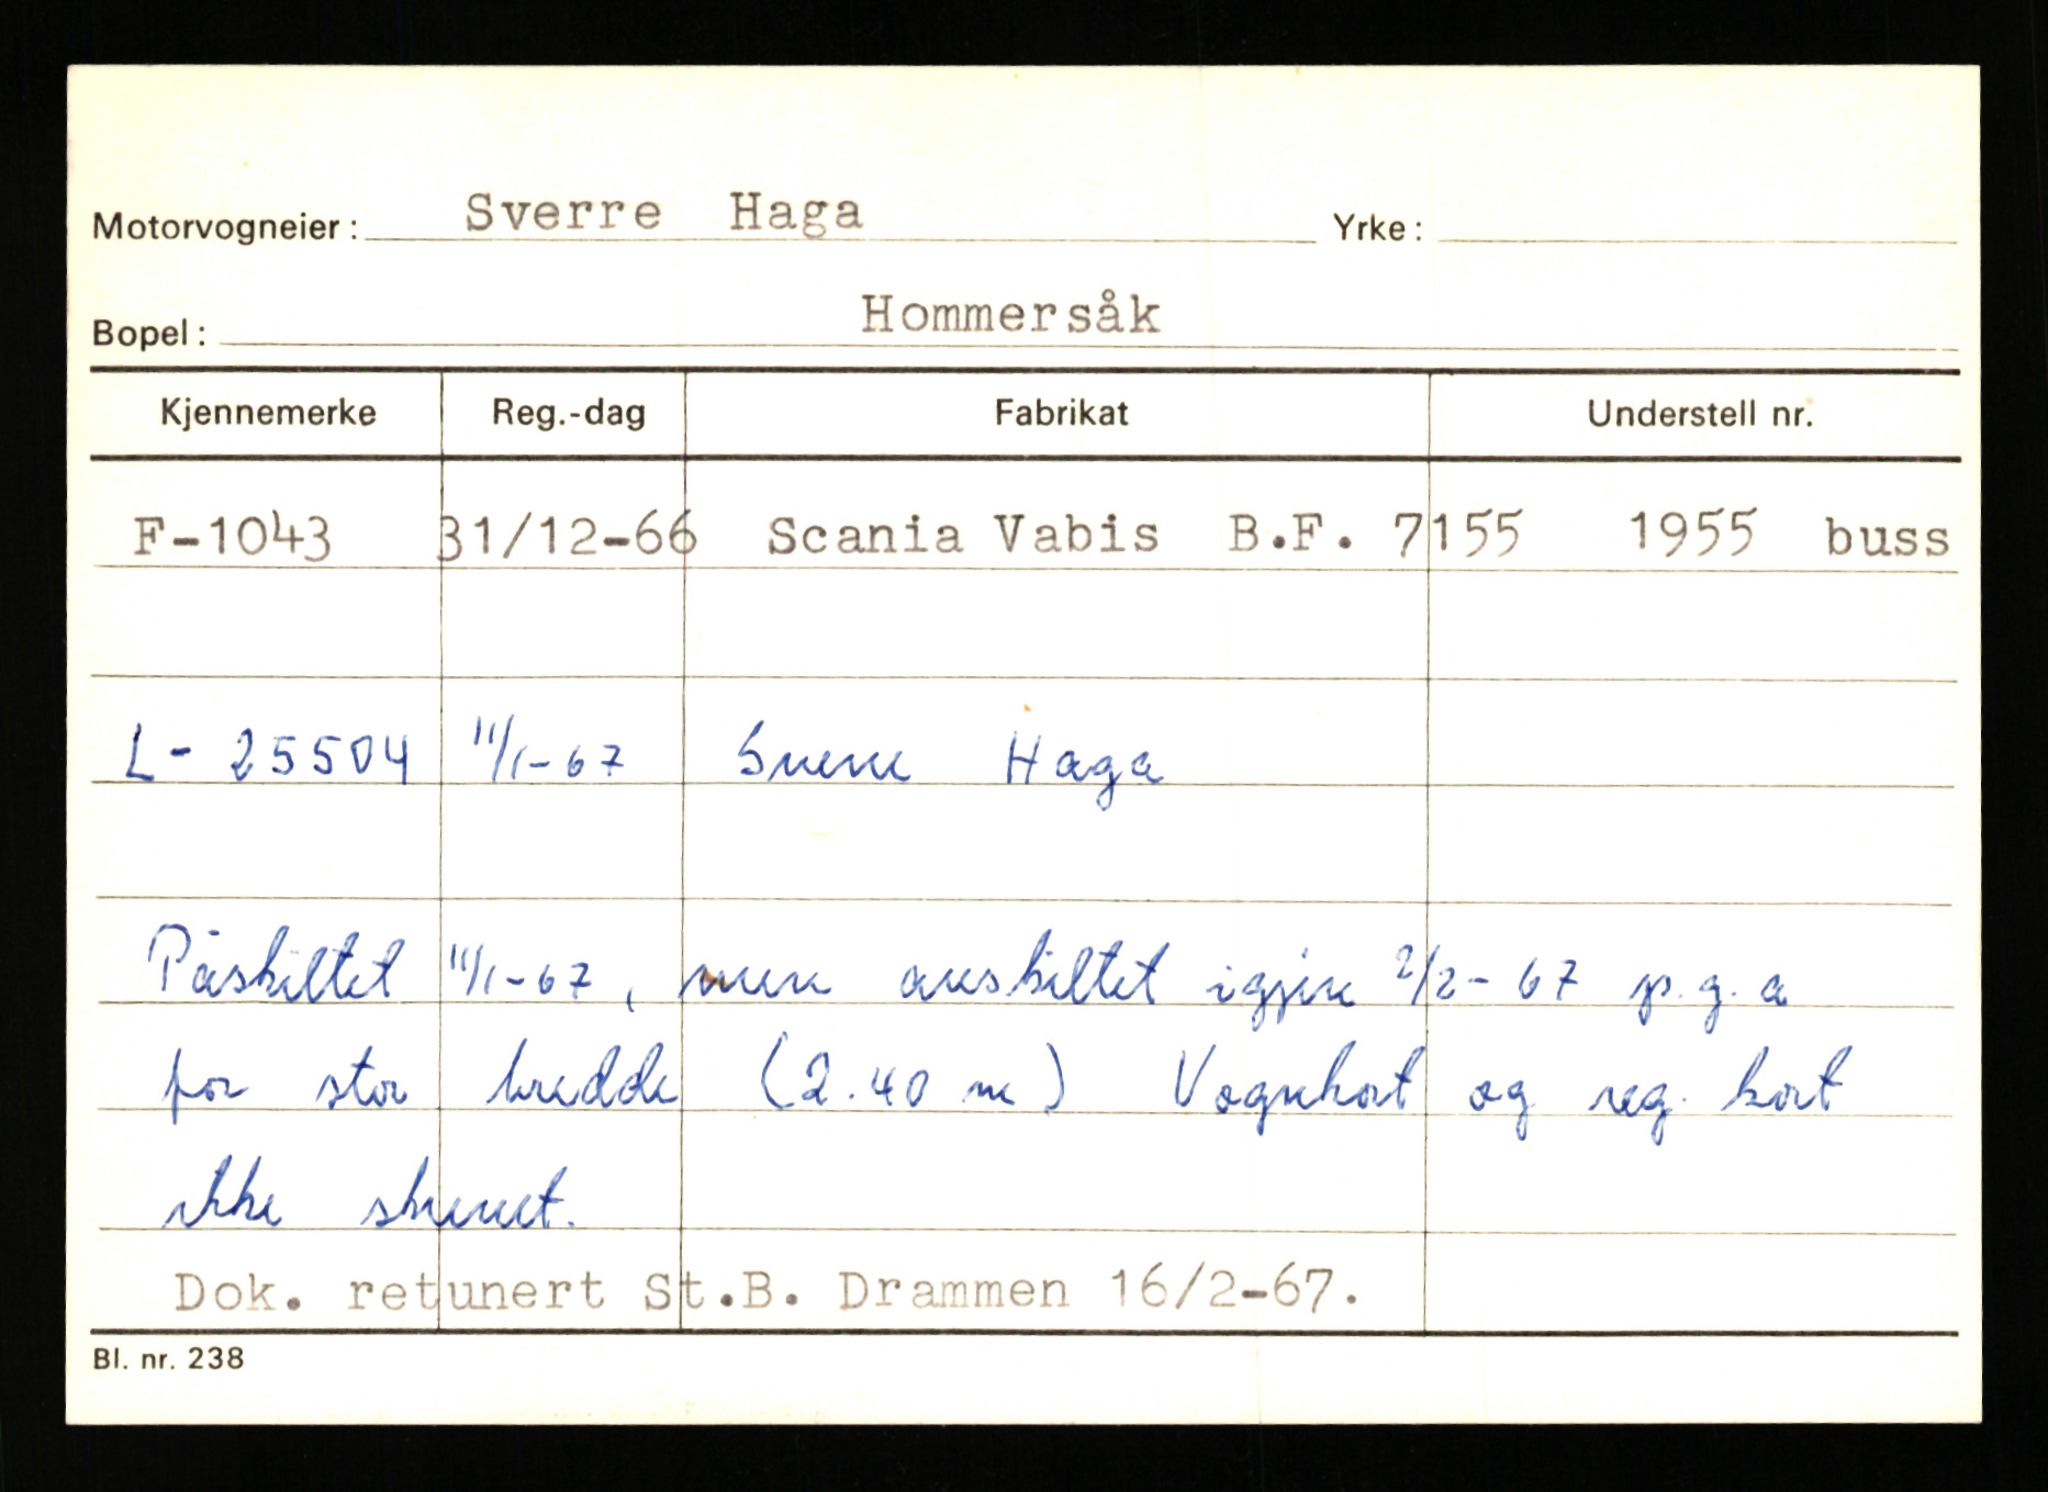 Motorvogneier: Sverre Haga Yrke:
Bopel: Hommersåk
Kjennemerke Reg.-dag Fabrikat Understell nr.
F-1043 31/12-66 Scania Vabis B.F. 7155 1955 buss
L- 25504 11/1-67 Sverre Haga
Påskiltet 11/1-67, men avskiltet igjen 2/2-67 p.g.a
for stor bredde (2.40 m) Vognkort og reg. kort
ikke skrevet.
Dok. retunert St.B. Drammen 16/2-67.
Bl. nr. 238